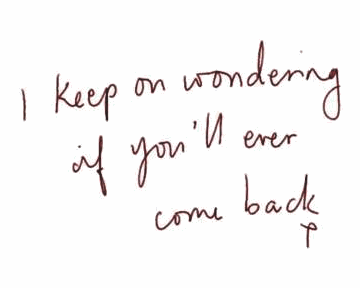 I keep on wondering
if you'll ever
come back